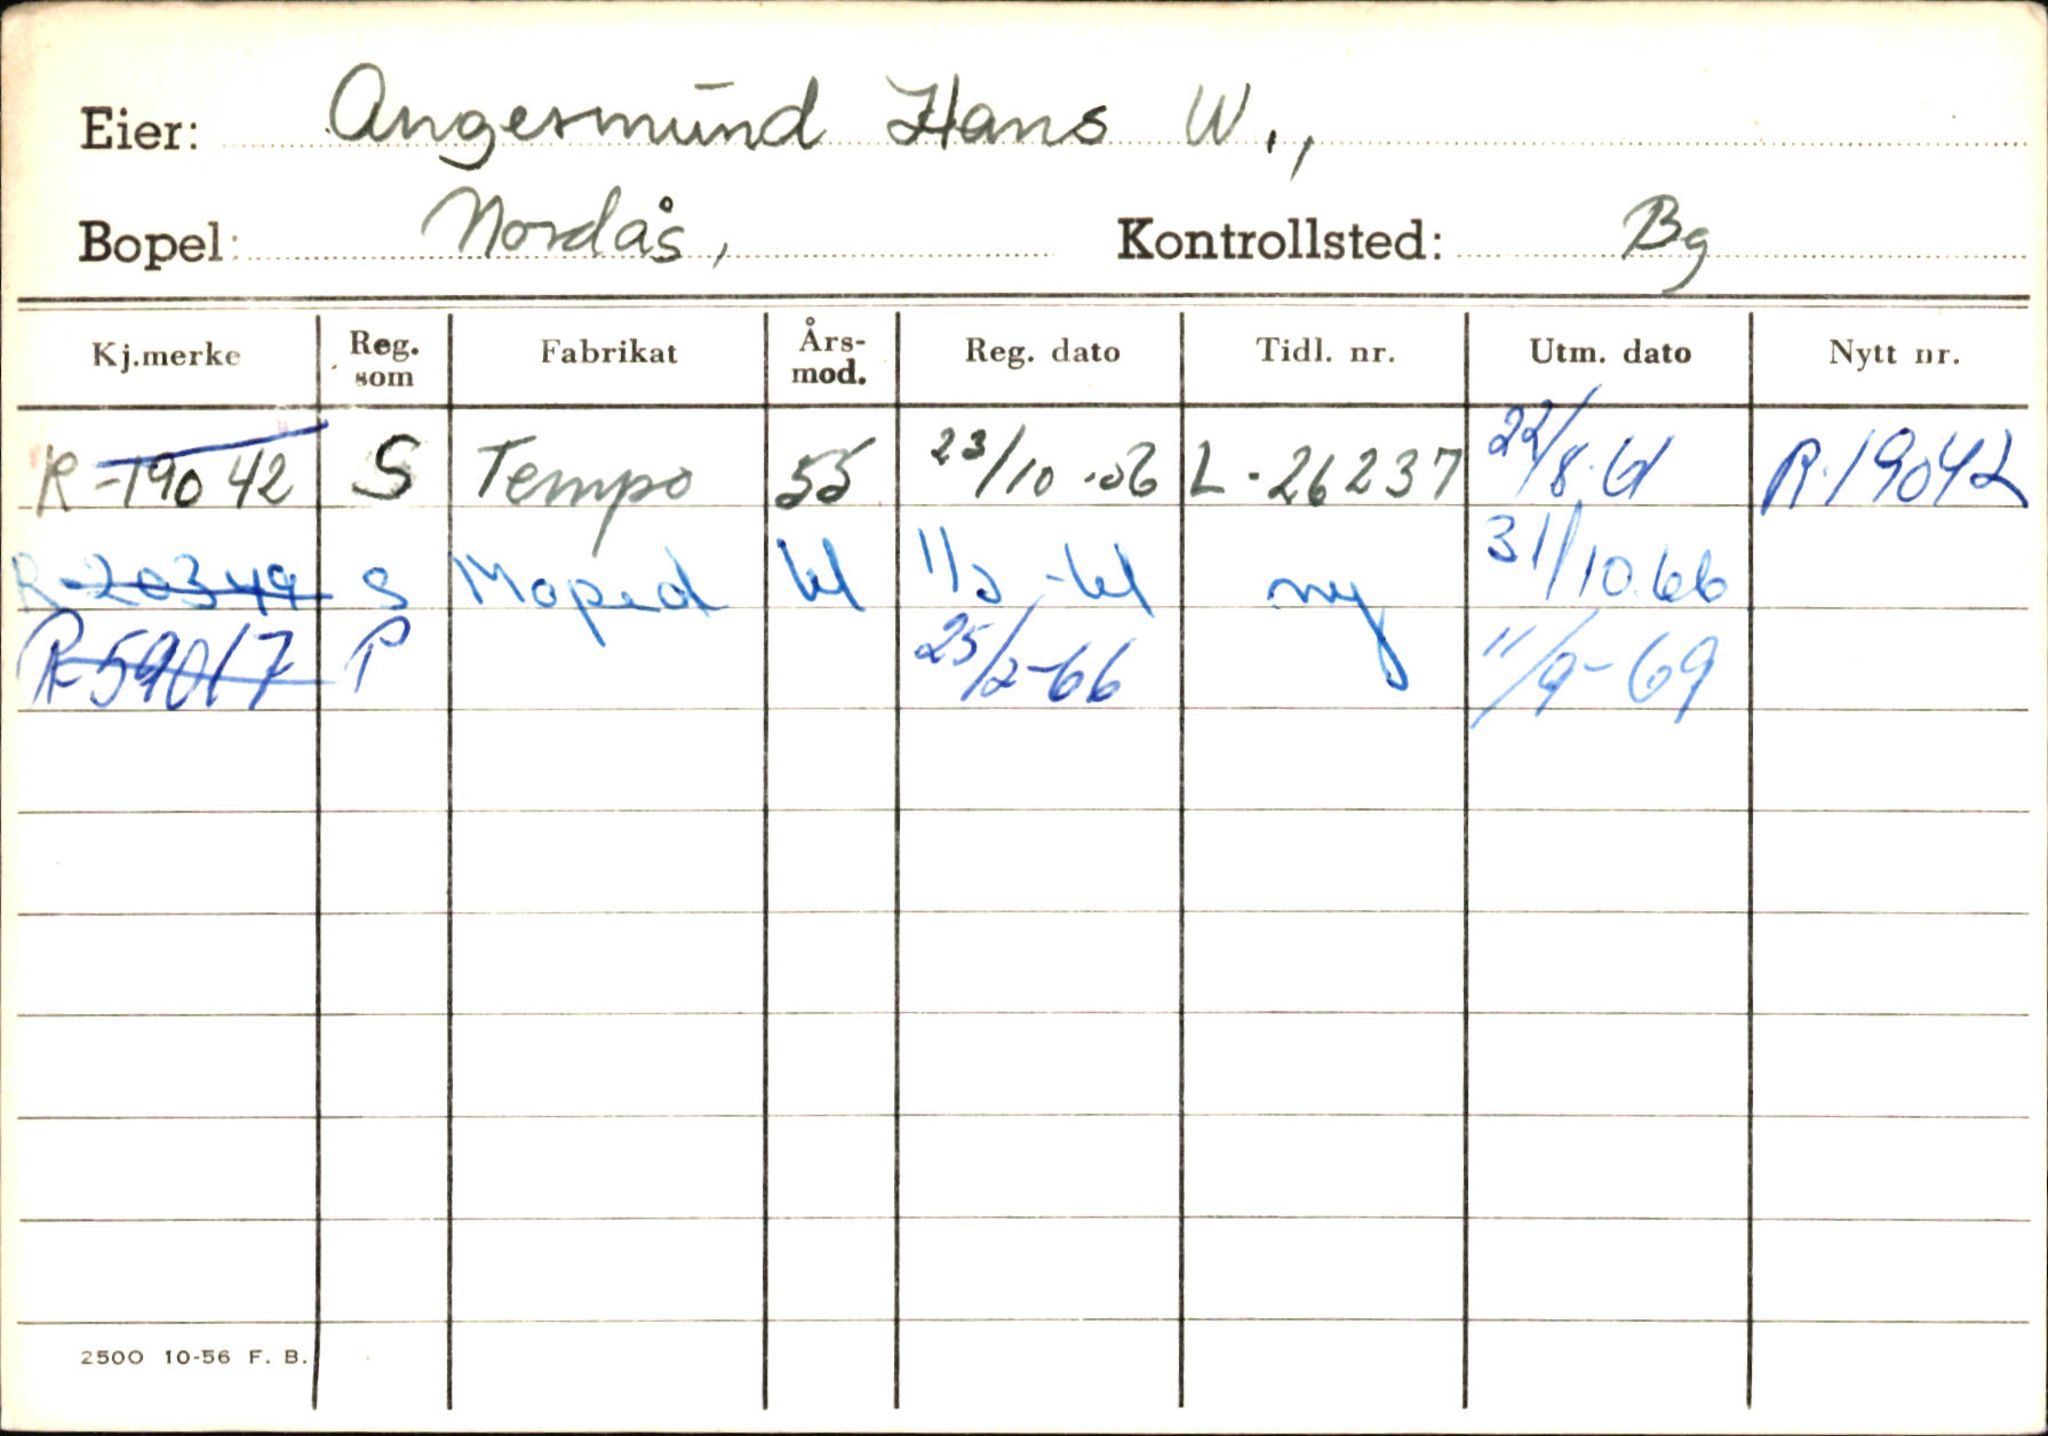 Eier: Angermünd Hans W.,
Bopel: Nordås, Kontrollsted: Bg
Kj.merke Reg. som Fabrikat Års-mod. Reg. dato Tidl. nr. Utm. dato Nytt nr.
R-19042 S Tempo 55 23/10-56 L-26237 22/8.61 R.19042
R-20349 S Moped 61 11/5-61 ny 31/10.66
R-59017 P 25/2-66 11/9-69
2500 10-56 F. B.